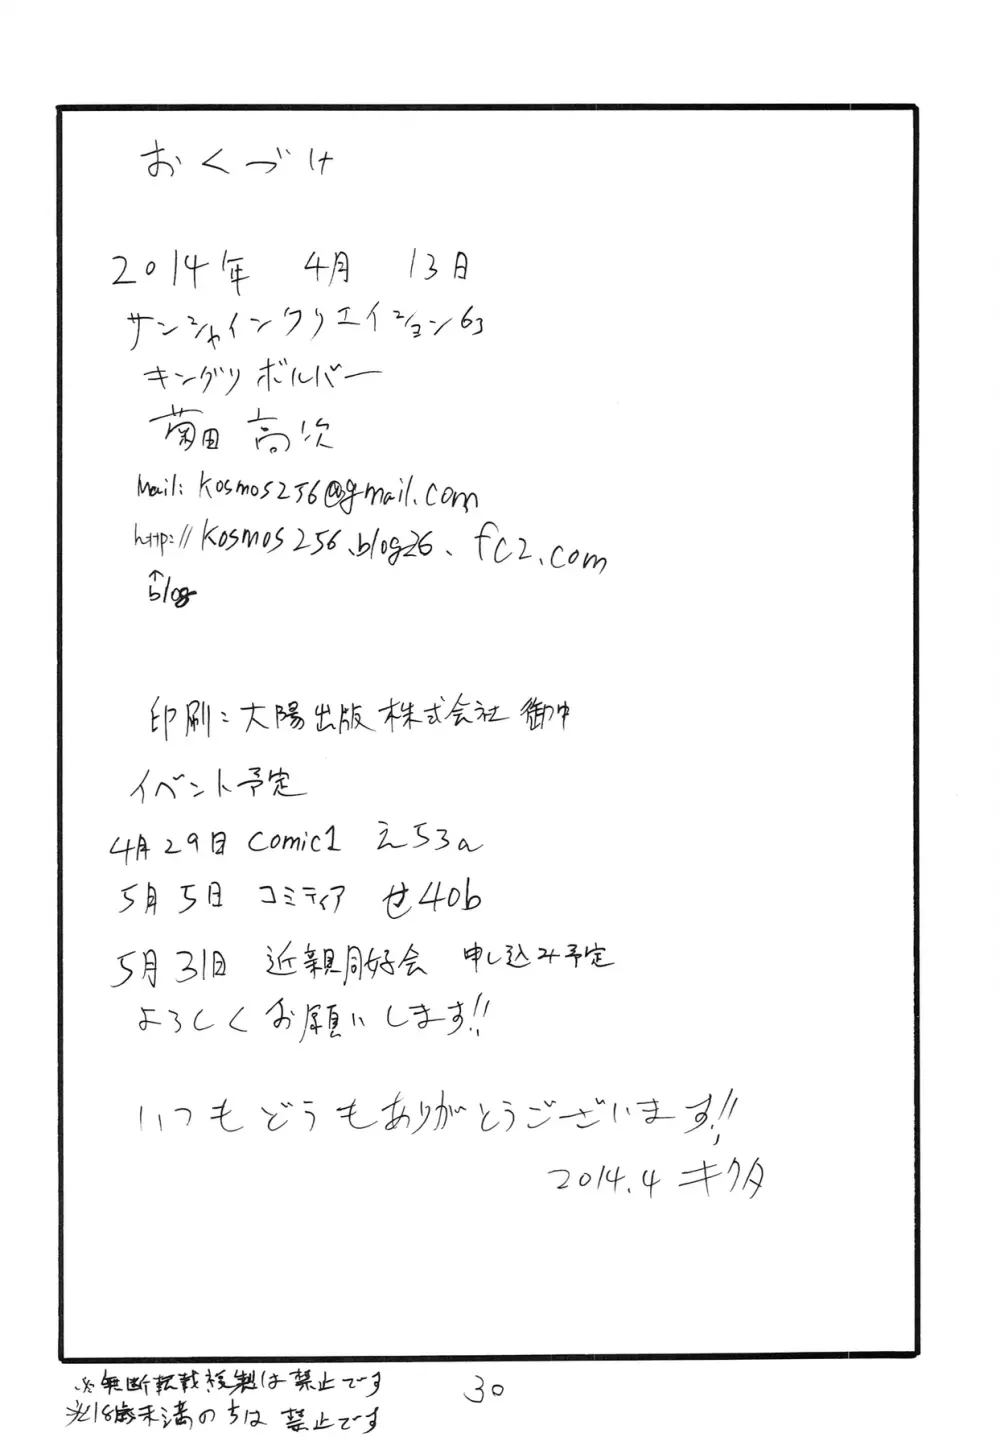 おくづけ
2014年 4月 13日
サンシャインクリエイション63
キングリボルバー
菊田 高次
Mail: kosmos256@gmail.com
http://kosmos256.blog26.fc2.com
↑
blog
印刷: 大陽出版株式会社 御中
イベント予定
4月29日 comic1 え53a
5月5日 コミティア せ40b
5月31日 近親同好会 申し込み予定
よろしくお願いします!!
いつもどうもありがとうございます!!
2014.4 キクタ
※無断転載複製は禁止です
※18歳未満のちは禁止です
30